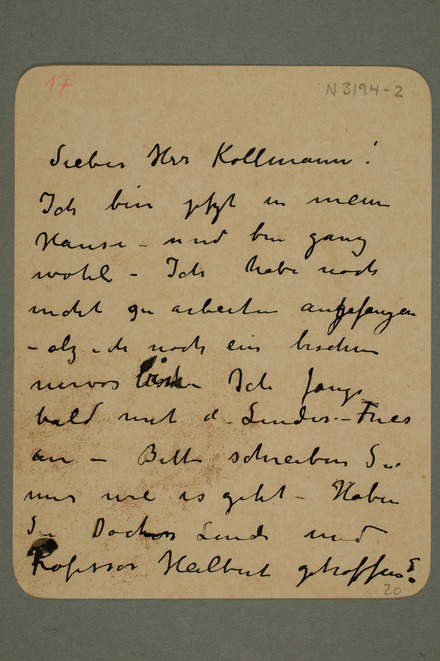 17
N 3194-2
Lieber Herr Kollmann!
Ich bin jetzt in meim
Hause - und bin ganz
wohl - Ich habe noch
nicht zu arbeiten angefangen
- als ich noch ein bischen
nervos bin Ich fange
bald mit d. Lindes - Fries
an - Bitte schreiben Sie
mir wie es geht - Haben
Sie Doctor Linde und
Professor Heilbut getroffen?
20